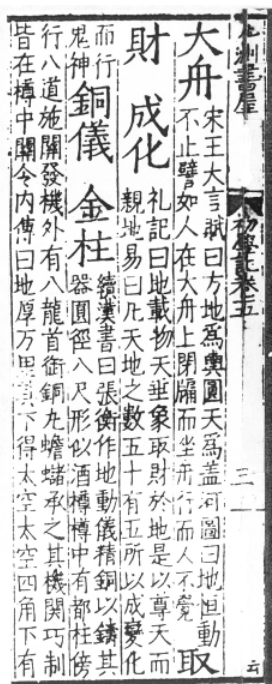 九洲書屋
初學記卷五
三
大舟
宋王大言賦曰方地爲輿圓天爲蓋河圖曰地恒動
不止譬如人在大舟上閉牖而坐舟行而人不覺
取
財 成化
礼記曰地載物天垂象取財於地是以尊天而
親地易曰凡天地之數五十有五所以成變化
而行
鬼神
銅儀 金柱
續漢書曰張衡作地動儀精銅以鑄其
器圓徑八尺形似酒樽樽中有都柱傍
行八道施關發機外有八龍首銜銅九蟾蜍承之其機関巧制
皆在樽中關令内傳曰地厚万里其下得太空太空四角下有